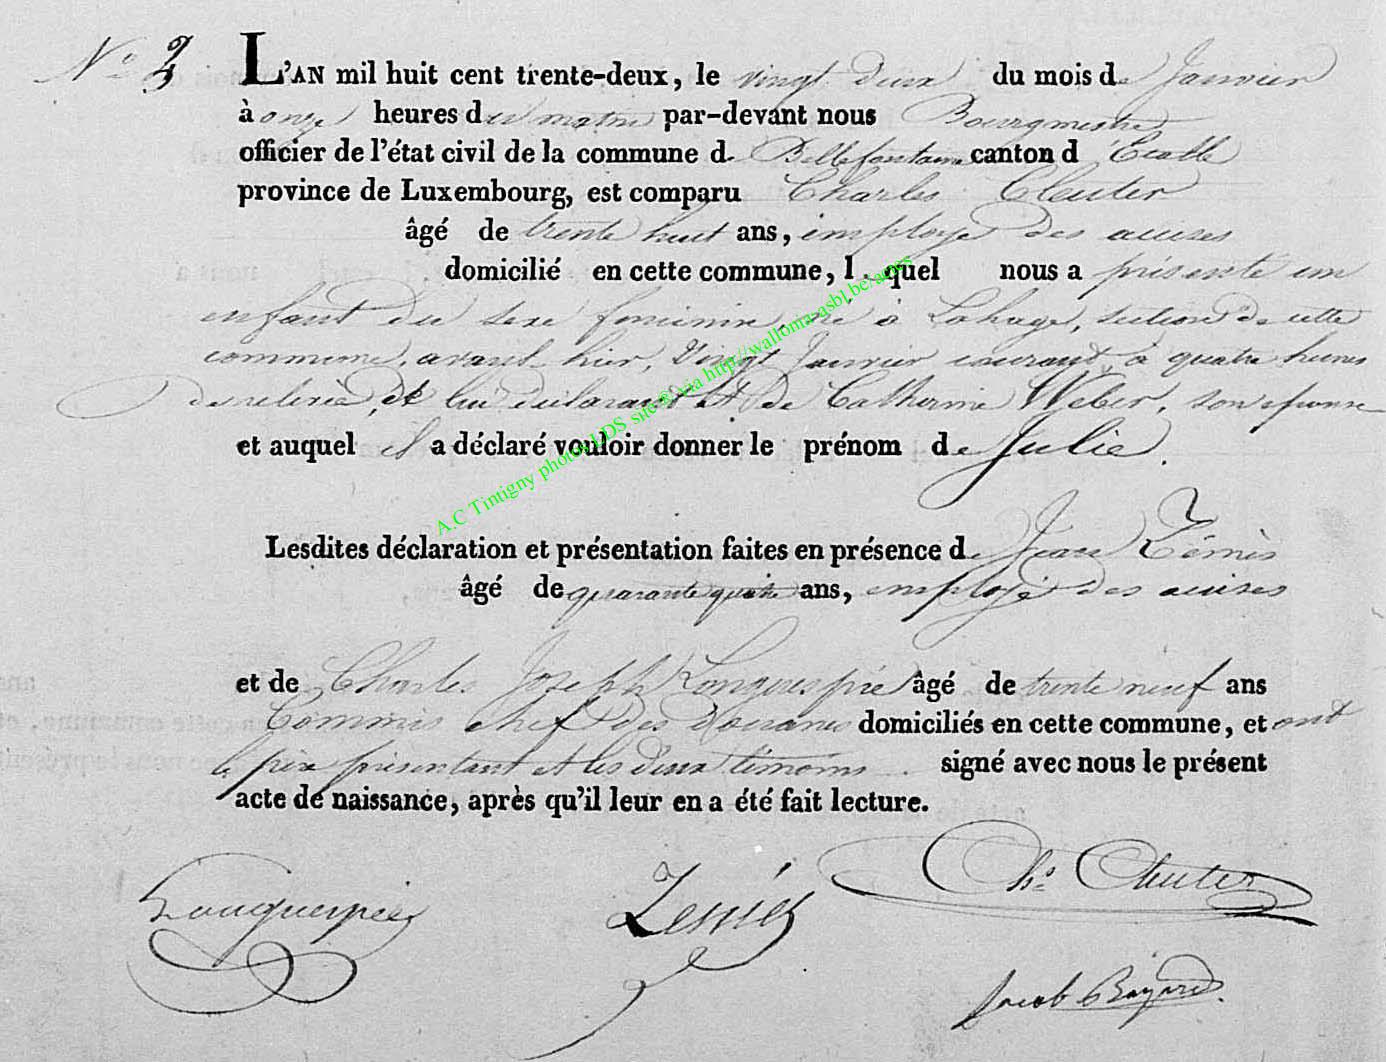 N° 3 L'AN mil huit cent trente-deux, le vingt deux du mois de Janvier
à onze heures du matin par-devant nous Bourgmestre
officier de l'état civil de la commune de Bellefontaine canton d'Etalle
province de Luxembourg, est comparu Charles Cleuter
âgé de trente huit ans, employé des accises
domicilié en cette commune, lequel nous a présenté un
enfant du sexe féminin, né à Lahage, section de cette
commune, avant hier, vingt Janvier courant à quatre heures
de relevée, de lui déclarant et de Catherine Weber, son épouse
et auquel il a déclaré vouloir donner le prénom de Julie.
Lesdites déclaration et présentation faites en présence de Jean
âgé de quarante quatre ans, employé des accises
et de Charles Joseph Longuespée âgé de trente neuf ans
Commis chef des douanes domiciliés en cette commune, et ont
le père présentant et les deux témoins signé avec nous le présent
acte de naissance, après qu'il leur en a été fait lecture.
Chs Cleuter
Jacob Bayard
A.C Tintigny photos LDS site @ via http://wallonia-asbl.be/actes